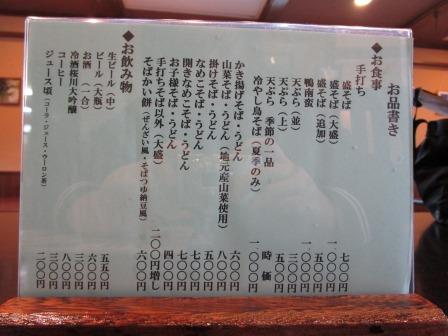 お品書き
◆お食事
手打ち
盛そば 七〇〇円
盛そば（大盛） 一〇〇〇円
盛そば（追加） 五〇〇円
鴨南蛮 一〇〇〇円
天ぷら（並） 三〇〇円
天ぷら（上） 五〇〇円
天ぷら 季節の一品 時価
冷やし鳥そば（夏季のみ） 一〇〇〇円
かき揚げそば・うどん 六〇〇円
山菜そば・うどん（地元産山菜使用） 八〇〇円
掛けそば・うどん 五〇〇円
なめこそば・うどん 七〇〇円
開きなめこそば・うどん 七〇〇円
お子様そば・うどん 四〇〇円
手打ちそば以外（大盛） 二〇〇円増し
そばかい餅（ぜんざい風・そばつゆ納豆風） 六〇〇円
◆お飲み物
生ビール（中） 五五〇円
ビール（大瓶） 六〇〇円
お酒（一合） 三〇〇円
冷酒桜川大吟醸 八〇〇円
コーヒー 三〇〇円
ジュース類（コーラ・ジュース・ウーロン茶） 二〇〇円